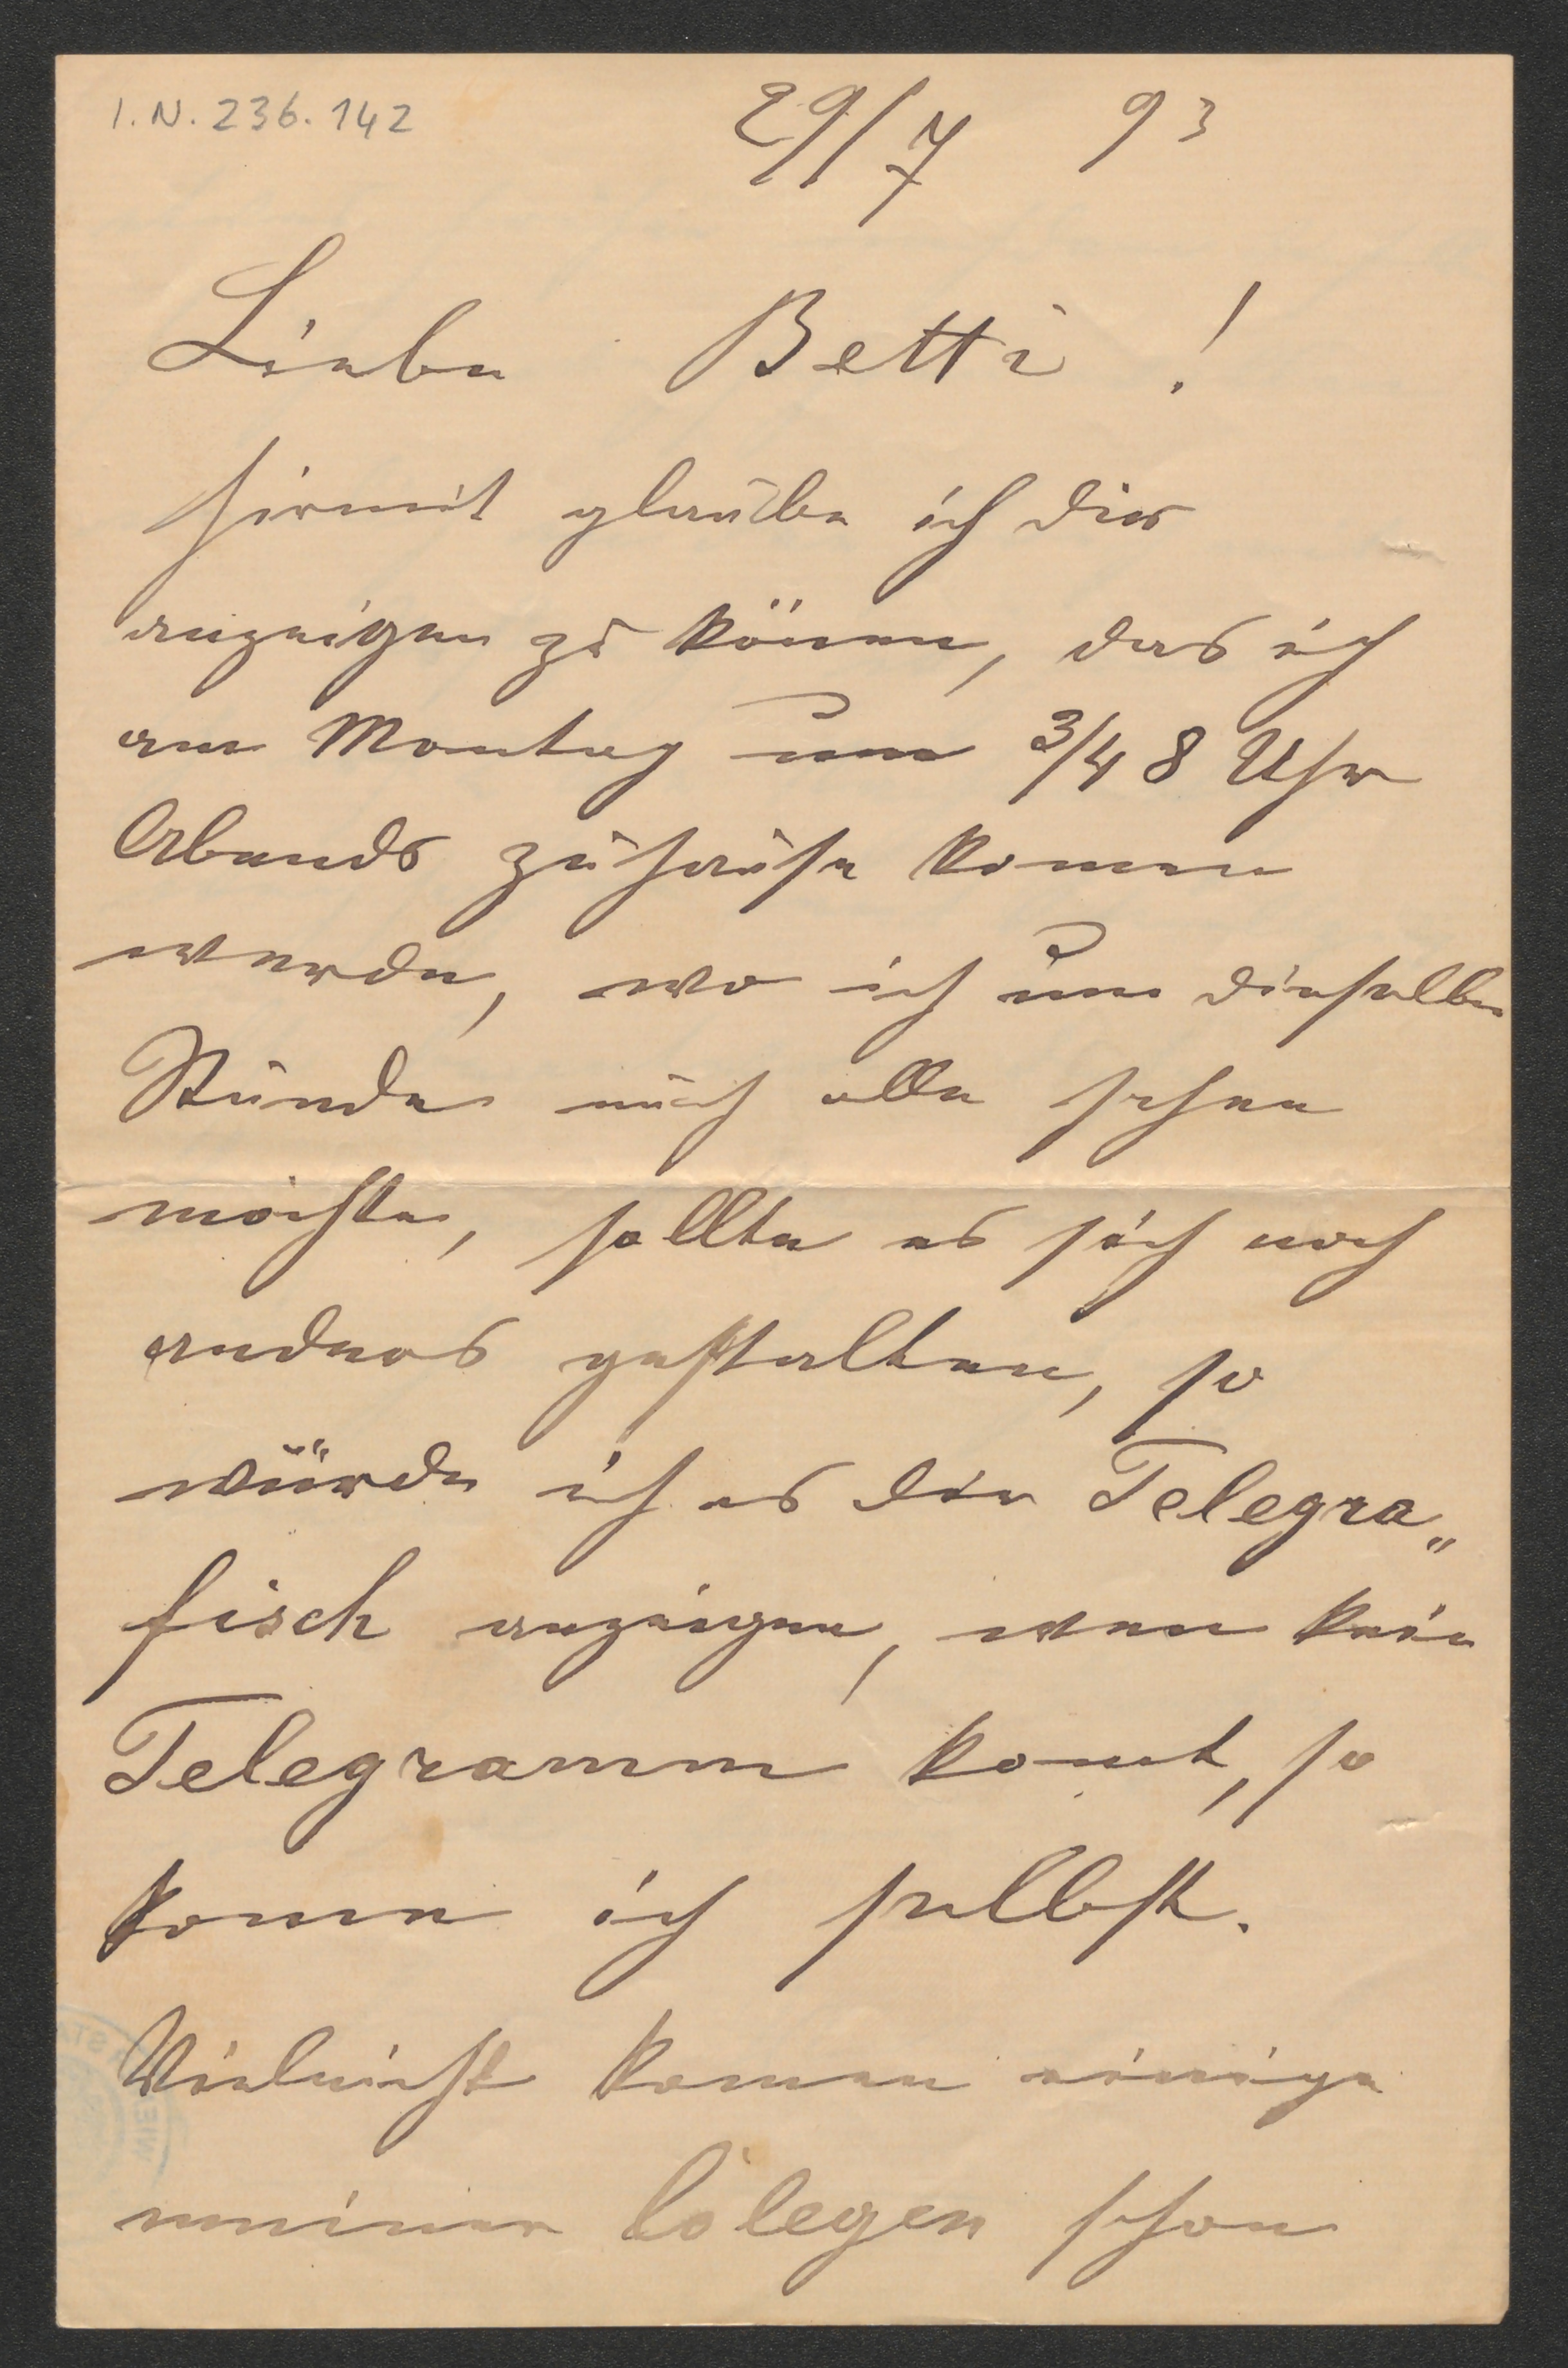 I.N. 236.142
29/7 93
Liebe Betti!
hirmit glaube ich dir
anzeigen zu könen, das ich
am Montag um 3/4 8 Uhr
Abends zuhause komen
werde, wo ich um dieselbe
Stunde euch alle sehen
möchte, sollte es sich noch
anders gestalten, so
würde ich es dir Telegra„
fisch anzeigen, wen kein
Telegramm komt, so
kome ich selbst.
Vieleicht komen einige
meiner Colegen schon